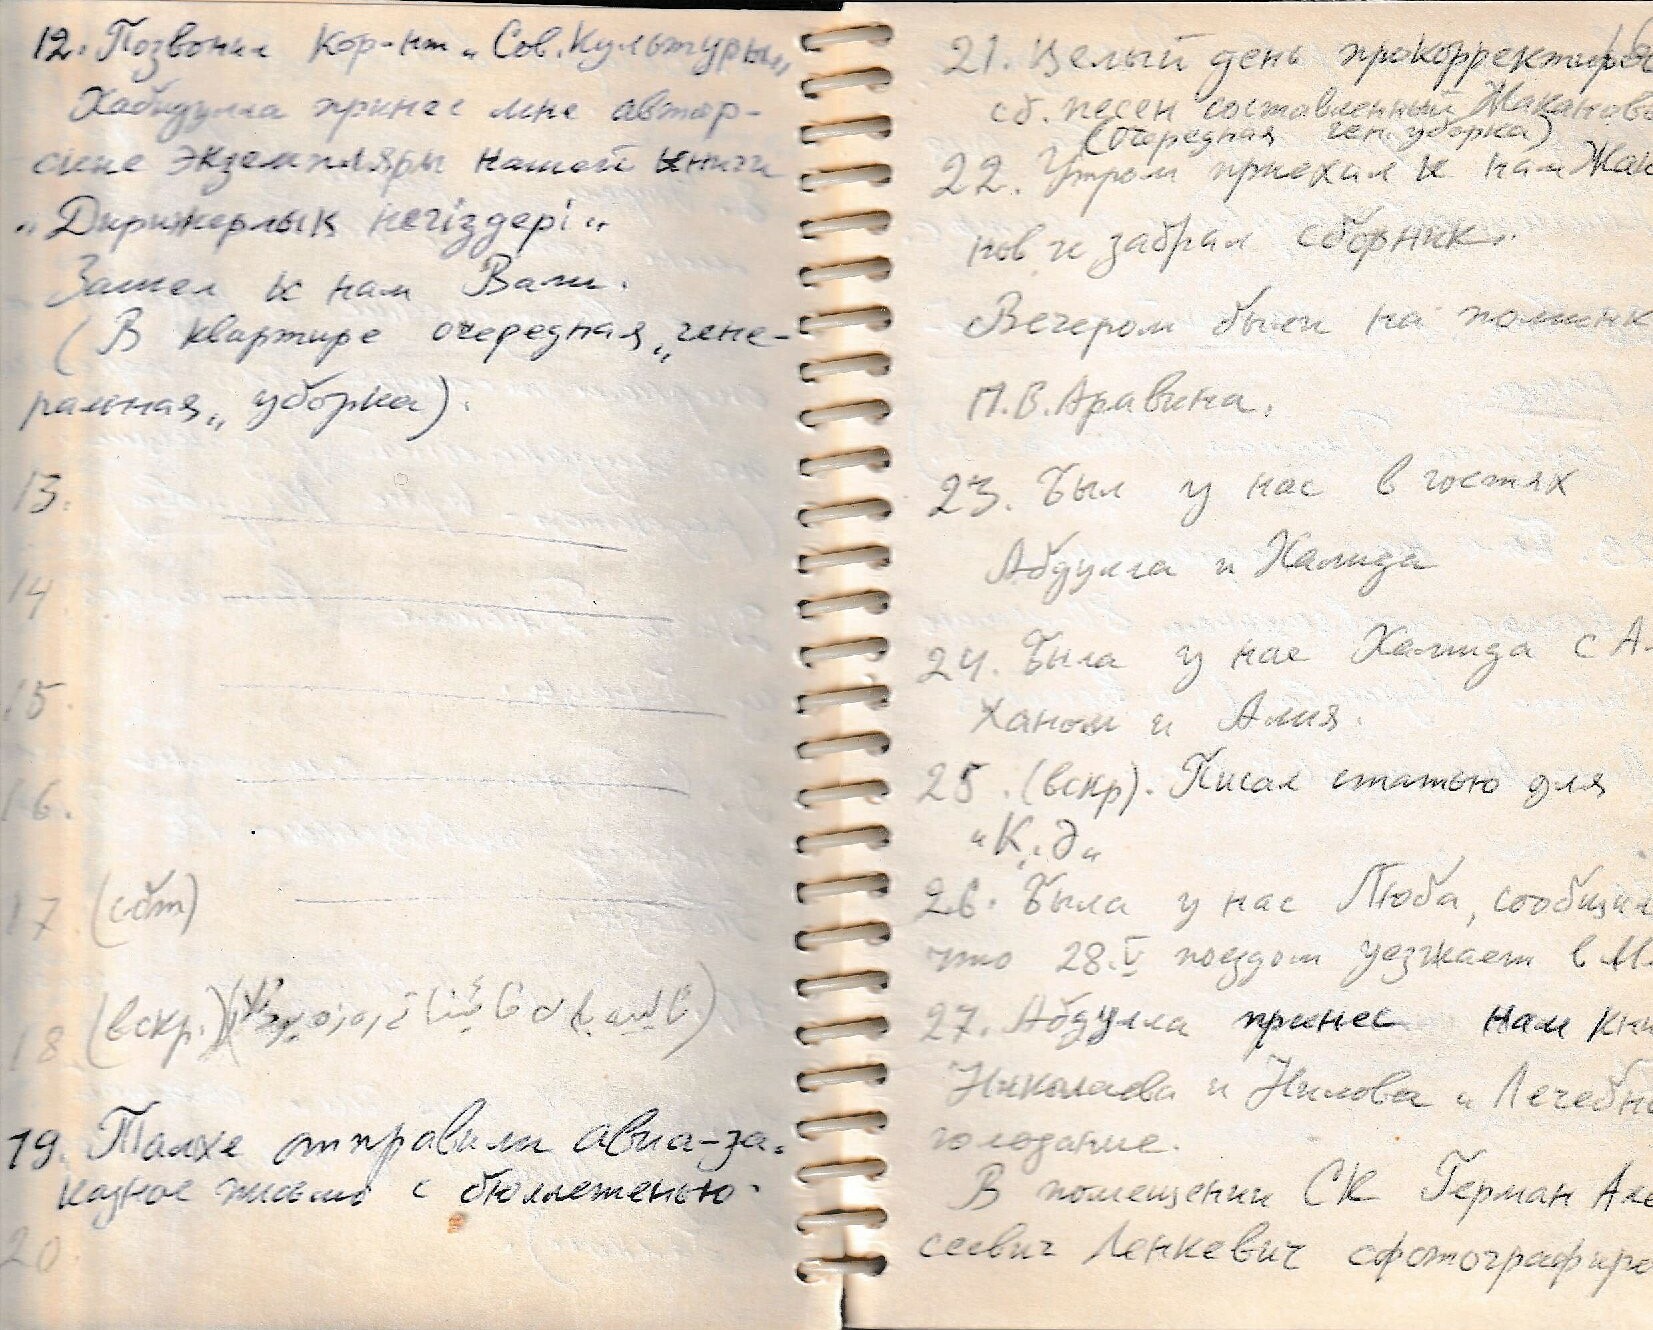 12. Позвонил кор-нт „Сов. Культуры„
Хабидулла принес мне автор-
ские экземпляры нашей книги
„Дирижерлык негіздері„
Зашел к нам Вали.
(В квартире очередная „гене-
ральная„ уборка).
13.
14
15.
16.
17 (сбт)
18 (вскр.)
19. Талхе отправили авиа-за-
казное письмо с бюллетенью.
20.
21. Целый день прокорректиров
сб. песен составленный Жаканов
(очередная ген. уборка)
22. Утром приехал к нам Жак
нов и забрал сборник.
Вечером были на поминк
П.В. Аравина.
23. Был у нас в гостях
Абдулла и Халида
24. Была у нас Халида с А.
Ханом и Алия.
25. (вскр). Писал статью для
„К.д„
26. Была у нас Люба, сообщил
что 28.V поездом уезжает в М.
27. Абдулла принес нам кни
Николаева и Нилова „Лечебн
голодание.
В помещении СК Герман Але
сеевич Ленкевич сфотографиро